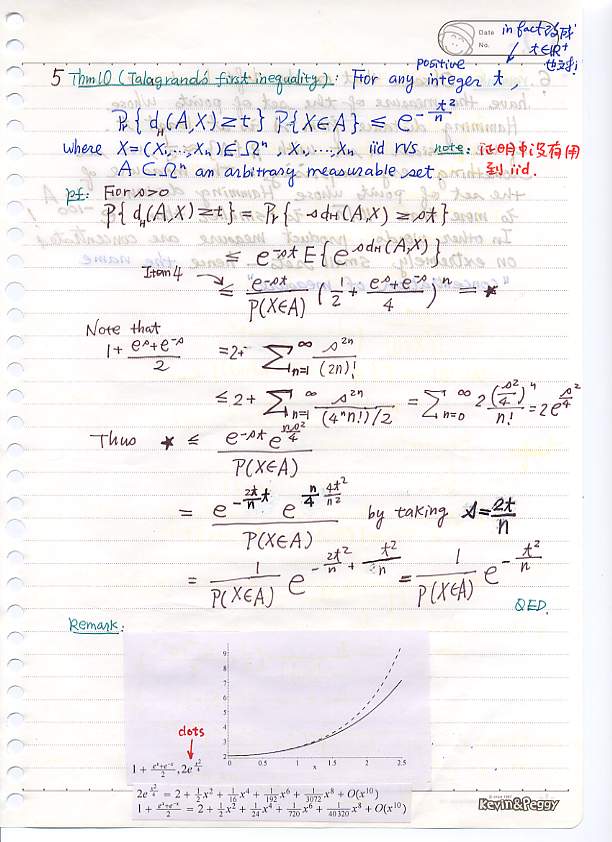 Date
No.
in fact 改成
t∈ℝ⁺
也對!
positive
5 Thm 10 (Talagrand's first inequality): For any integer t,
Pr{d_H(A,X) ≥ t} P{X∈A} ≤ e^{-t²/n}
where X=(X₁,…,Xₙ)∈Ωⁿ, X₁,…,Xₙ iid rvs note: 证明中沒有用
A⊂Ωⁿ an arbitrary measurable set. 到 iid.
pf: For s>0
P{d_H(A,X) ≥ t} = Pr{ sd_H(A,X) ≥ st}
≤ e^{-st} E{e^{sd_H(A,X)}}
Item 4
≤ e^{-st}/P(X∈A) (1/2 + (e^s+e^{-s})/4)^n = ★
Note that
1+ (e^s+e^{-s})/2 = 2+ ∑_{n=1}^∞ s^{2n}/(2n)!
≤ 2+ ∑_{n=1}^∞ s^{2n}/((4ⁿn!)/2) = ∑_{n=0}^∞ 2(s²/4)^n/n! = 2e^{s²/4}
Thus ★ ≤ e^{-st} e^{ns²/4}/P(X∈A)
= e^{-(2t/n)t} e^{(n/4)(4t²/n²)}/P(X∈A) by taking s=2t/n
= 1/P(X∈A) e^{-2t²/n + t²/n} = 1/P(X∈A) e^{-t²/n}
QED.
Remark:
9
8
7
6
5
4
3
2
0 0.5 1 1.5 2 2.5
x
dots
1 + (e^x+e^{-x})/2, 2e^{x²/4}
2e^{x²/4} = 2 + 1/2 x² + 1/16 x⁴ + 1/192 x⁶ + 1/3072 x⁸ + O(x¹⁰)
1 + (e^x+e^{-x})/2 = 2 + 1/2 x² + 1/24 x⁴ + 1/720 x⁶ + 1/40320 x⁸ + O(x¹⁰)
Kevin&Peggy